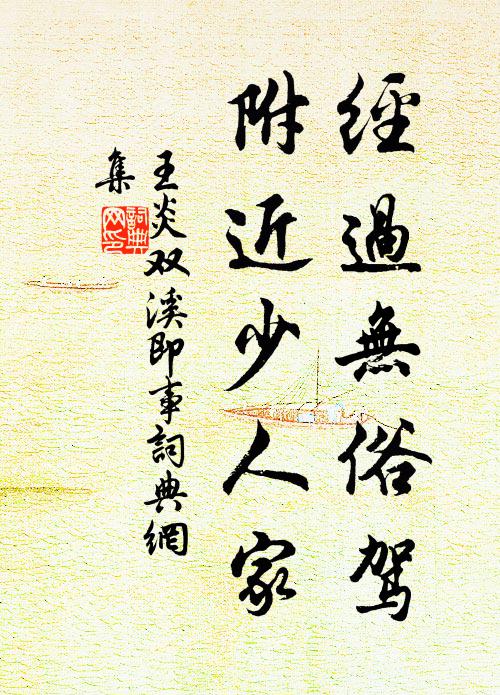 經過無俗駕
附近少人家
王炎双溪即事詞典網
集
詞典网印